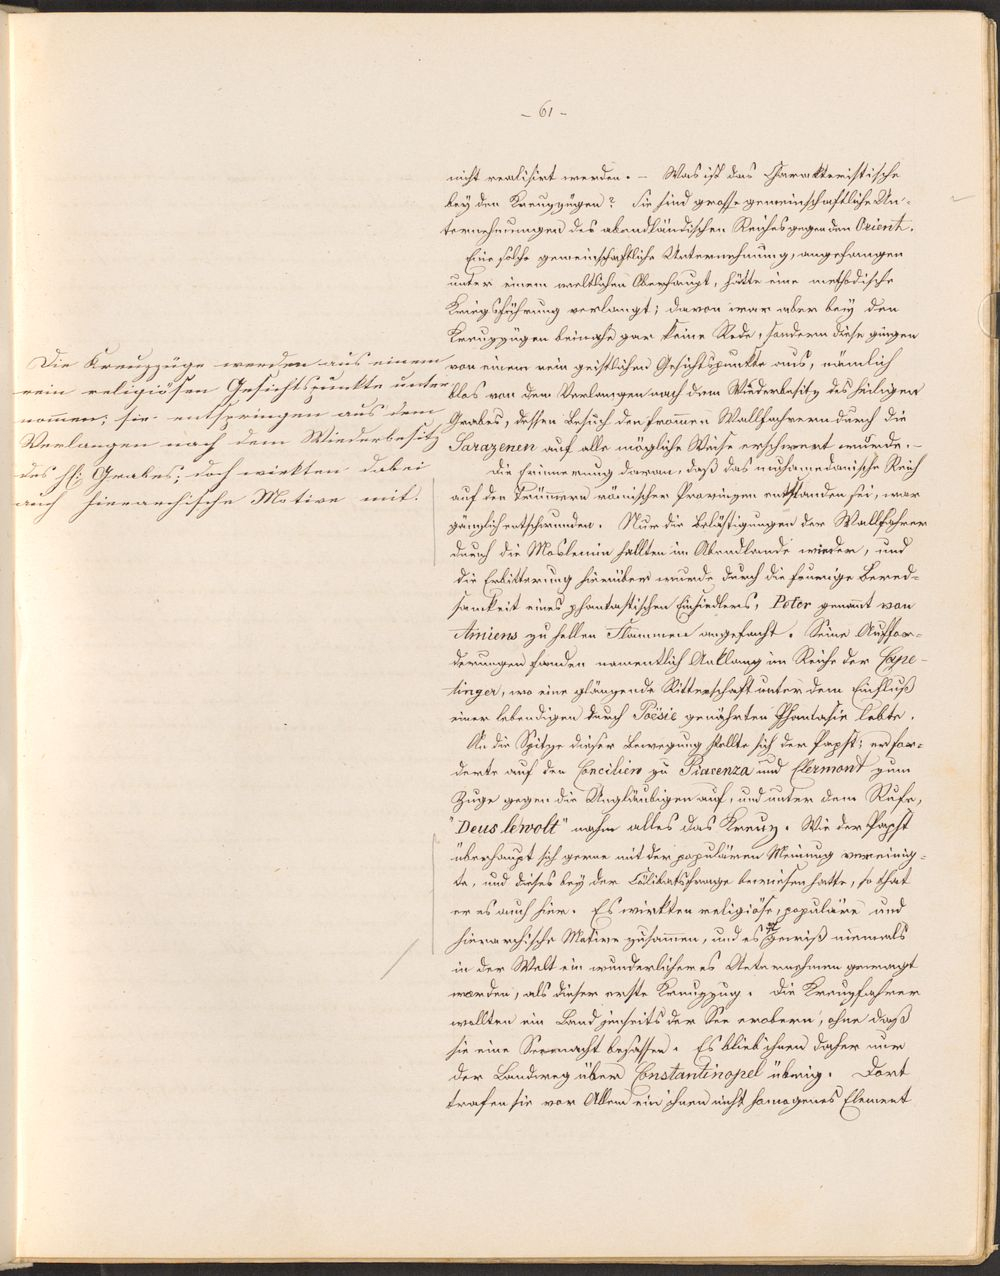 - 61 -
nicht realisirt werden. – Was ist das Charakteristische
bey den Kreuzzügen? Sie sind grosse gemeinschaftliche Un-
ternehmungen des abendländischen Reiches gegen den Orient.
Eine solche gemeinschaftliche Unternehmung, angefangen
unter einem weltlichen Oberhaupt, hätte eine methodische
Kriegsführung verlangt; davon war aber bey den
Kreuzzügen beinahe gar keine Rede, sondern diese gingen
von einem rein geistlichen Gesichtspunkte aus, nämlich
blos von dem Verlangen nach dem Wiederbesitz des heiligen
Grabes, dessen Besuch den frommen Wallfahrern durch die
Sarazenen auf alle mögliche Weise erschwert wurde. –
Die Erinnerung daran, daß das muhamedanische Reich
auf den Trümmern römischer Provinzen entstanden sei, war
gänzlich entschwunden. Nur die Belästigungen der Wallfahrer
durch die Moslemin hallten im Abendlande wieder, und
die Erbitterung hierüber wurde durch die feurige Bered-
samkeit eines phantastischen Einsiedlers, Peter genannt von
Amiens zu hellen Flammen angefacht. Seine Auffor-
derungen fanden namentlich Anklang im Reiche der Cape-
tinger, wo eine glänzende Ritterschaft unter dem Einfluß
einer lebendigen durch Poësie genährten Phantasie lebte.
An die Spitze dieser Bewegung stellte sich der Papst; er for-
derte auf den Concilien zu Piacenza und Clermont zum
Zuge gegen die Ungläubigen auf, und unter dem Rufe,
"Deus lewolt" nahm alles das Kreuz. Wie der Papst
überhaupt sich gerne mit der populären Meinung vereinig-
te, und dieses bey der Cölibatsfrage bewiesen hatte, so that
er es auch hier. Es wirkten religiöse, populäre und
hierarchische Motive zusammen, und es ist gewiß niemals
in der Welt ein wunderlicheres Unternehmen gewagt
worden, als dieser erste Kreuzzug. Die Kreuzfahrer
wollten ein Land jenseits der See erobern, ohne daß
sie eine Seemacht besassen. Es blieb ihnen daher nur
der Landweg über Constantinopel übrig. Dort
trafen sie vor Allem ein ihnen nicht homogenes Element
Die Kreuzzüge werden aus einem
rein religiösen Gesichtspunkte unter
nommen; sie entspringen aus dem
Verlangen nach dem Wiederbesitz
des hl: Grabes; doch wirkten dabei
auch hierarchische Motive mit.